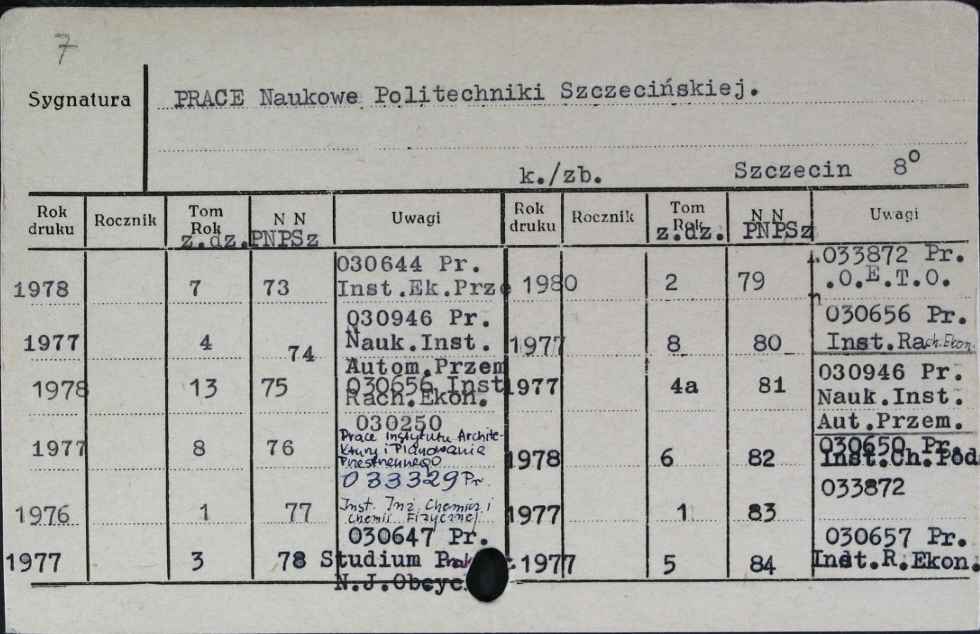 7
Sygnatura PRACE Naukowe Politechniki Szczecińskiej.
k./zb. Szczecin 8°
Rok druku Rocznik Tom Rok z.dz. N N PNPSz Uwagi Rok druku Rocznik Tom Rok z.dz. N N PNPSz Uwagi
1978 7 73 030644 Pr. Inst.Ek.Prze
1977 4 74 030946 Pr. Nauk.Inst. Autom.Przem
1978 13 75 030656 Inst Rach.Ekon.
1977 8 76 030250 Prace Instytutu Architektury i Planowania Przestrzennego
1976 1 77 033329 Pr. Inst. Inż. Chemicz i Chemii Fizycznej
1977 3 78 030647 Pr. Studium N.J.Obcyc
1980 2 79 .033872 Pr. .O.E.T.O.
1977 8 80 030656 Pr. Inst.Rach.Ekon.
1977 4a 81 030946 Pr. Nauk.Inst. Aut.Przem.
1978 6 82 030650 Pr. Inst.Ch.Pod
1977 1 83 033872
1977 5 84 030657 Pr. Inst.R.Ekon.